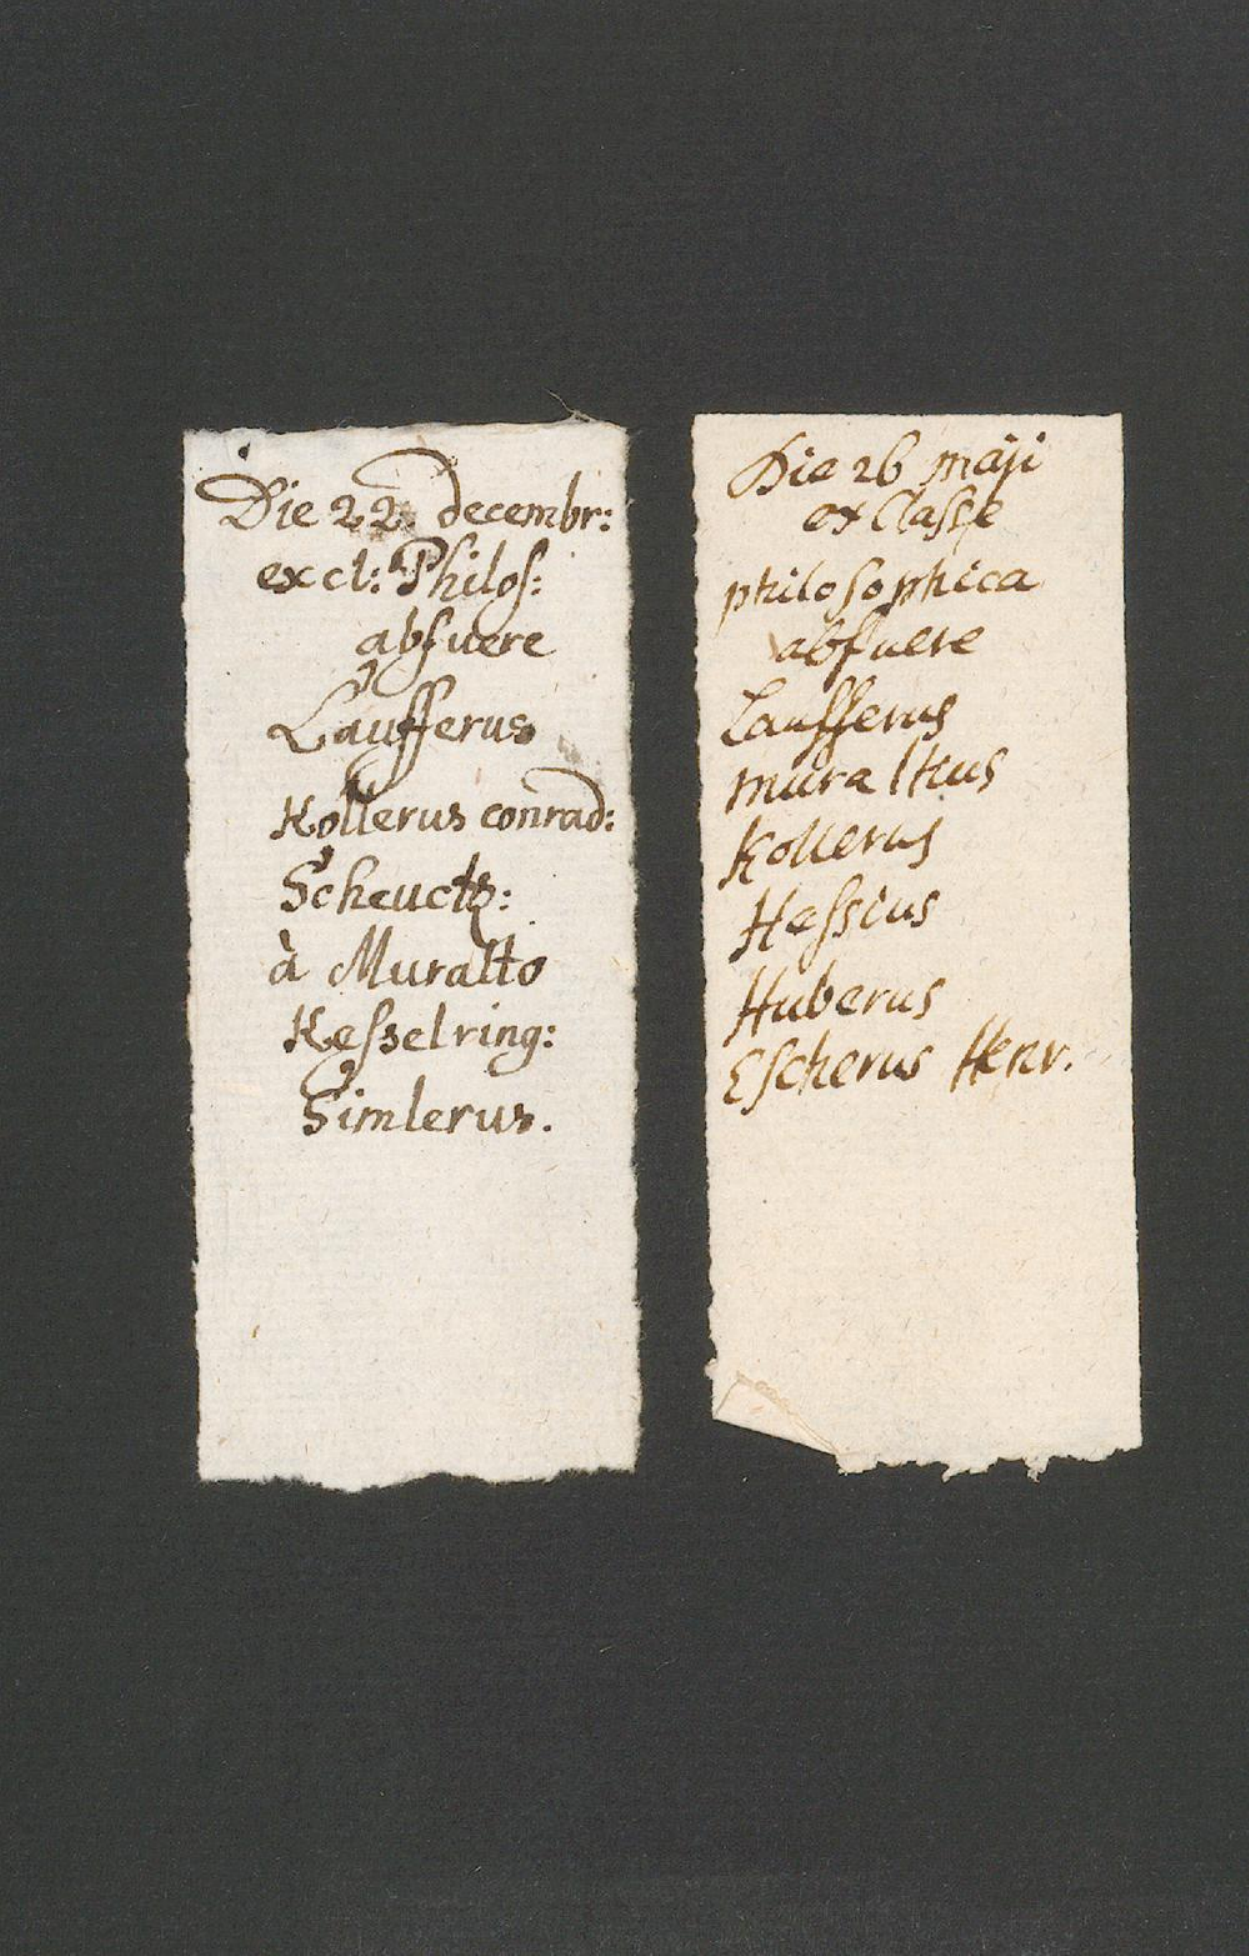 Die 22. decembr:
ex cl: Philos:
absuere
Laufferus
Kollerus conrad:
Scheuctz:
à Muralto
Kesselring:
Simlerus.
Die 26 maji
ex Classe
philosophica
abfuere
Laufferus
muralthus
Kollerus
Hessius
Huberus
Escherus Henr.